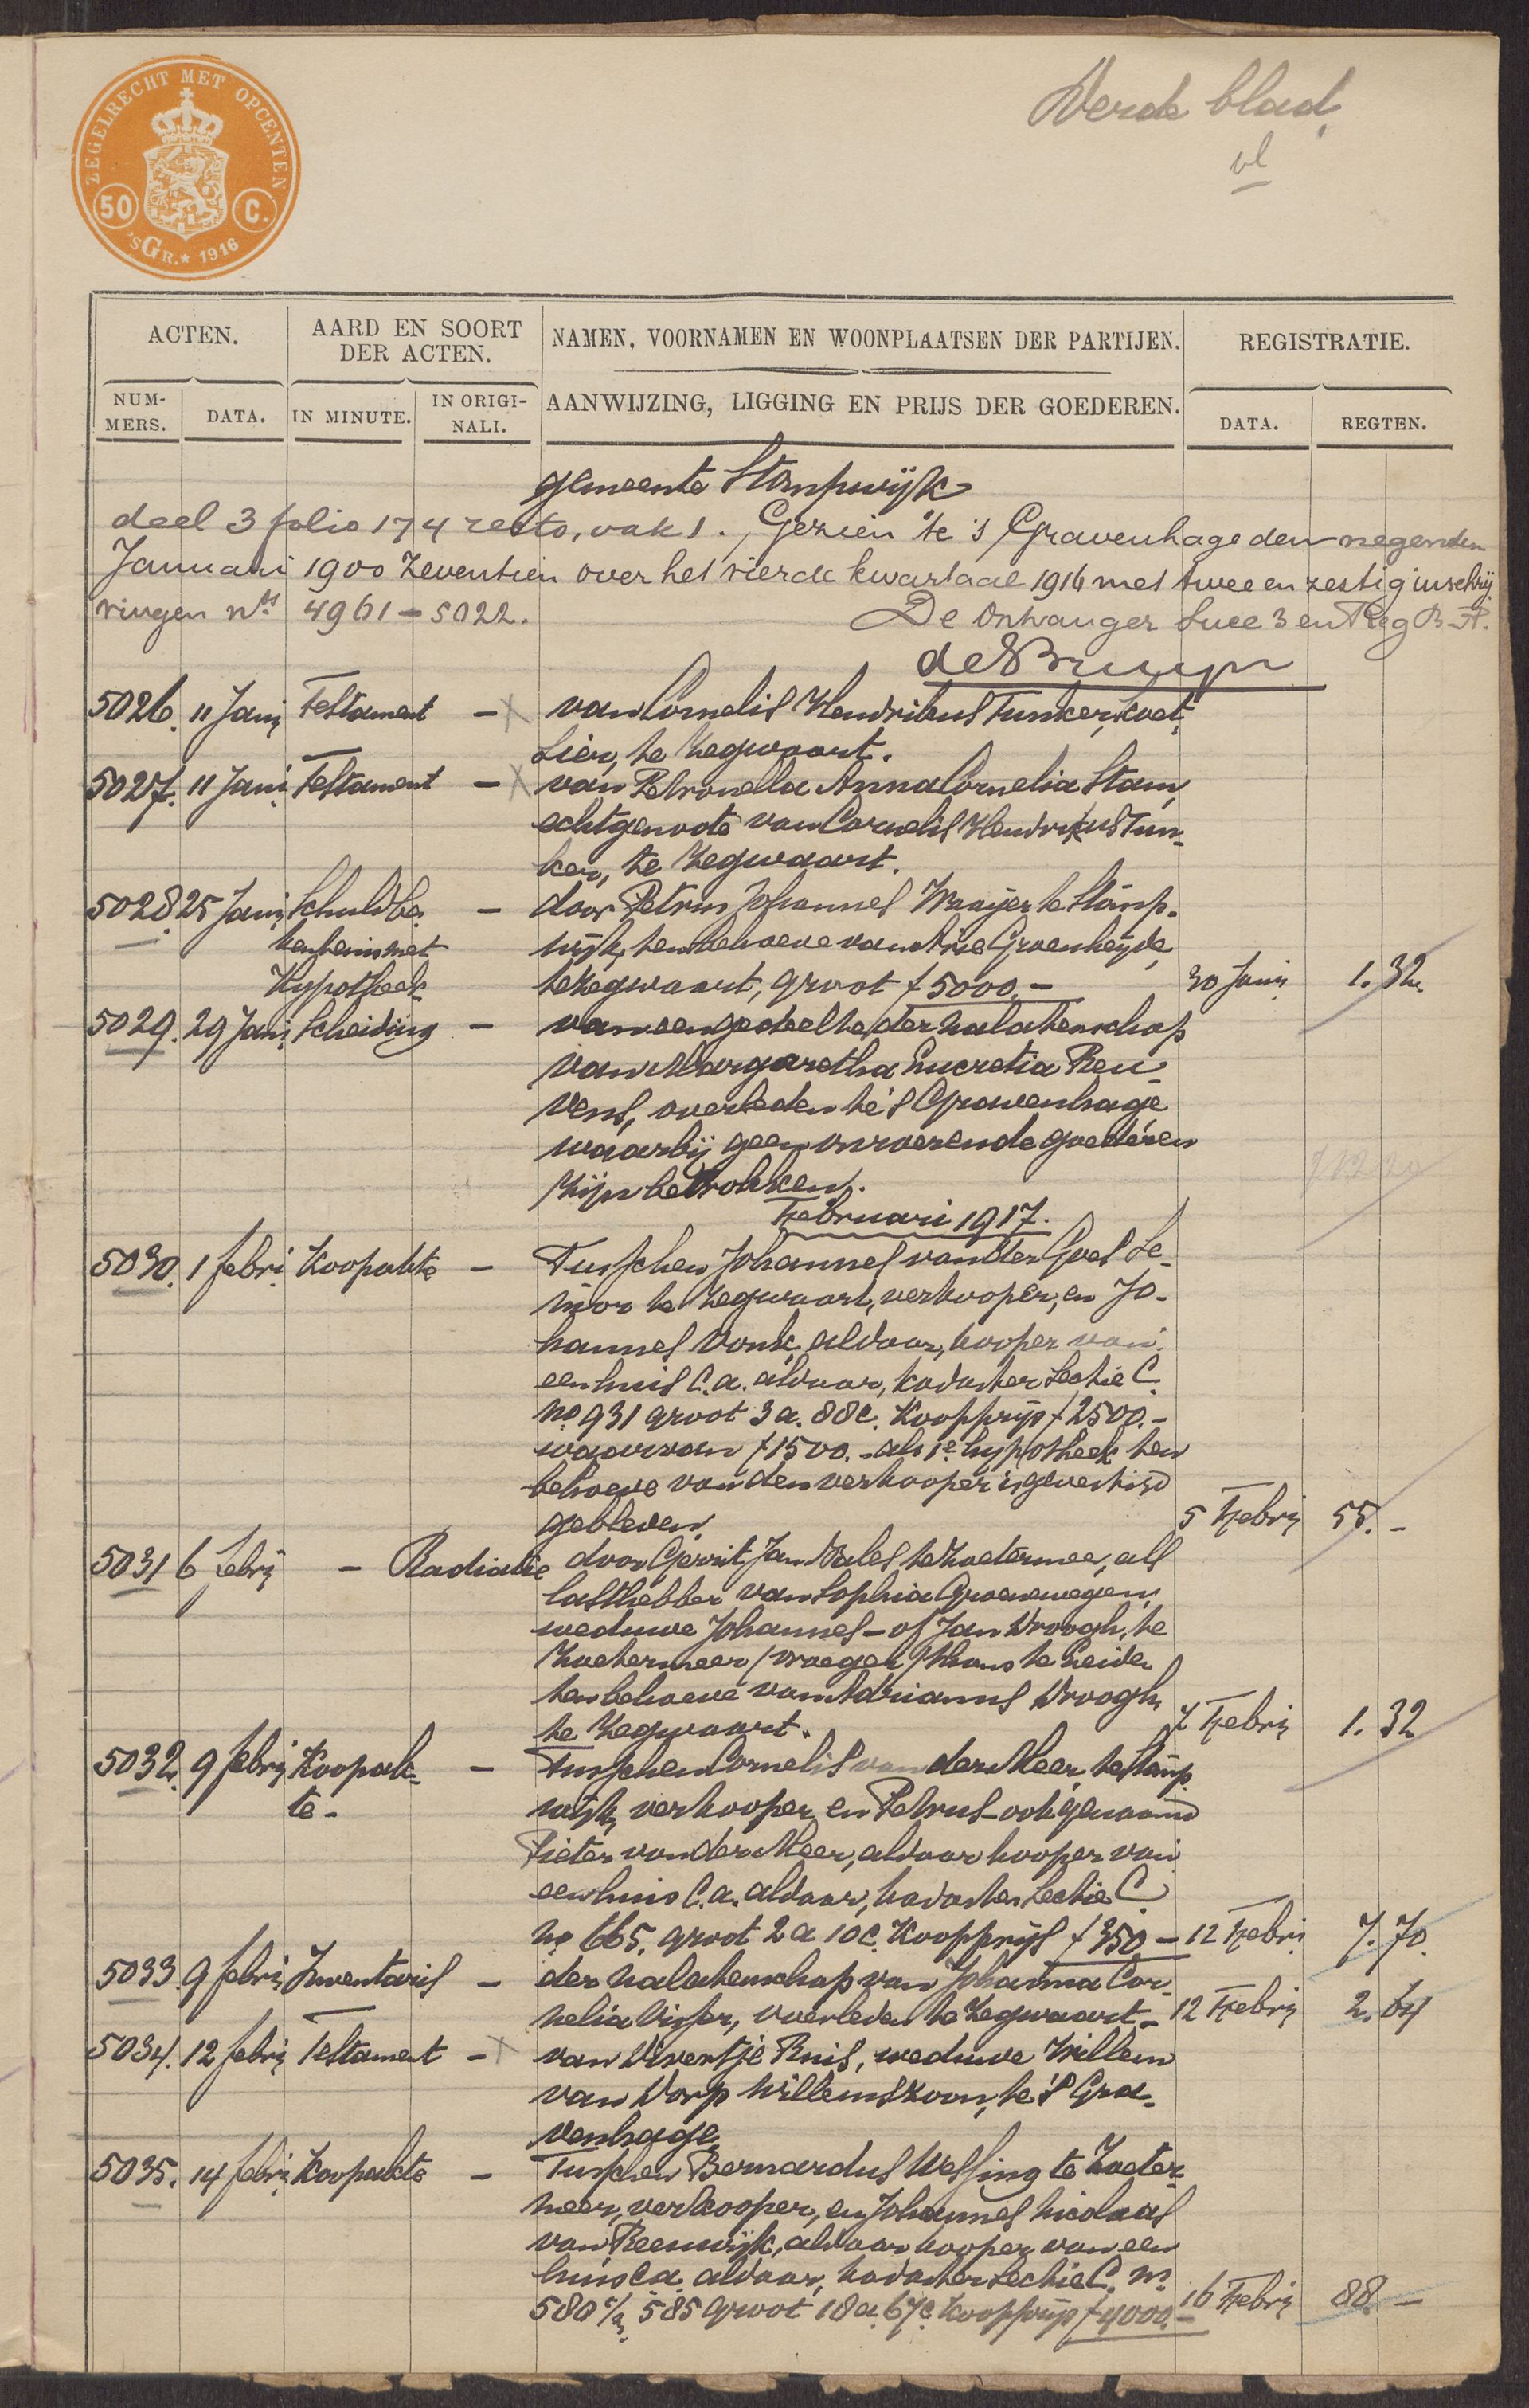 Derde blad.
vl
ZEGELRECHT MET OPCENTEN
50 C.
'SGR. * 1916
ACTEN.
AARD EN SOORT DER ACTEN.
NAMEN, VOORNAMEN EN WOONPLAATSEN DER PARTIJEN.
REGISTRATIE.
NUM-MERS.
DATA.
IN MINUTE.
IN ORIGI-NALI.
AANWIJZING, LIGGING EN PRIJS DER GOEDEREN.
DATA.
REGTEN.
gemeente Stompwijk
deel 3 folio 174 recto, vak 1. Gezien te 's Gravenhage den negenden
Januari 1900 Zeventien over het vierde kwartaal 1916 met twee en zestig inschrij
vingen nrs 4961 - 5022.
De Ontvanger Succ 3 en Reg B. A.
de Bruyn
5026. 11 Jani Testament - X van Cornelis Hendrikus Tunker, koet,
sier, te Zegwaart.
5027. 11 Jani. Testament - X van Petronella Anna Cornelia Stam,
echtgenoote van Cornelis Hendrikus Tun-
ker, te Zegwaart.
5028. 25 Jani Schuldbe - door Petrus Johannes Waaijer te Stomp-
kentenis met wijk, ten behoeve van Arie Groenheijde,
Hypotheek te Zegwaart, groot f 5000.- 30 Jani 1.32
5029. 29 Jani. Scheiding - van een gedeelte der nalatenschap
van Margaretha Lucretia Reu-
vens, overleden te 's Gravenhage
waarbij geen onroerende goederen
zijn betrokken.
Februari 1917.
5030. 1 febri Koopakte - Tusschen Johannes van der Goes Se-
nior te Zegwaart, verkooper, en Jo-
hannes Vonk, aldaar, kooper van
een huis c.a. aldaar, kadaster Sectie C.
no 931 groot 3 a. 88 c. Koopprijs f 2500.-
waarvan f 1500.- als 1e hypotheek ten
behoeve van den verkooper is gevestigd
gebleven. 5 Febri 55.-
5031 6 febri - Radiatie door Gerrit Jan Males te Zoetermeer, als
lasthebber van Sophia Groenewegen,
weduwe Johannes - of Jan Droogh, te
Zoetermeer / vroeger / thans te Leiden
ten behoeve van Adrianus Droogh,
te Zegwaart. 7 Febri 1.32
5032. 9 febri Koopak- - Tusschen Cornelis van der Meer, te Stomp
te- wijk, verkooper en Petrus - ook genaamd
Pieter van der Meer, aldaar kooper van
een huis c.a. aldaar, kadaster Sectie C
no 665. groot 2 a 10 c. Koopprijs f 350.- 12 Febri 7.70.
5033. 9 febri Inventaris - der nalatenschap van Johanna Cor-
nelia Visser, overleden te Zegwaart - 12 Febri 2.64
5034. 12 febri Testament - X van Divertje Buis, weduwe Willem
van Dorp Willemszoon, te 's Gra-
venhage
5035. 14 febri Koopakte - Tusschen Bernardus Wessing te Zoeter
meer, verkooper, en Johannes Nicolaas
van Reeuwijk, aldaar kooper van een
huis c.a. aldaar, kadaster Sectie C. no
580 t/m 585 groot 18 a. 67 c. koopprijs f 4000.- 16 Febri 88.-